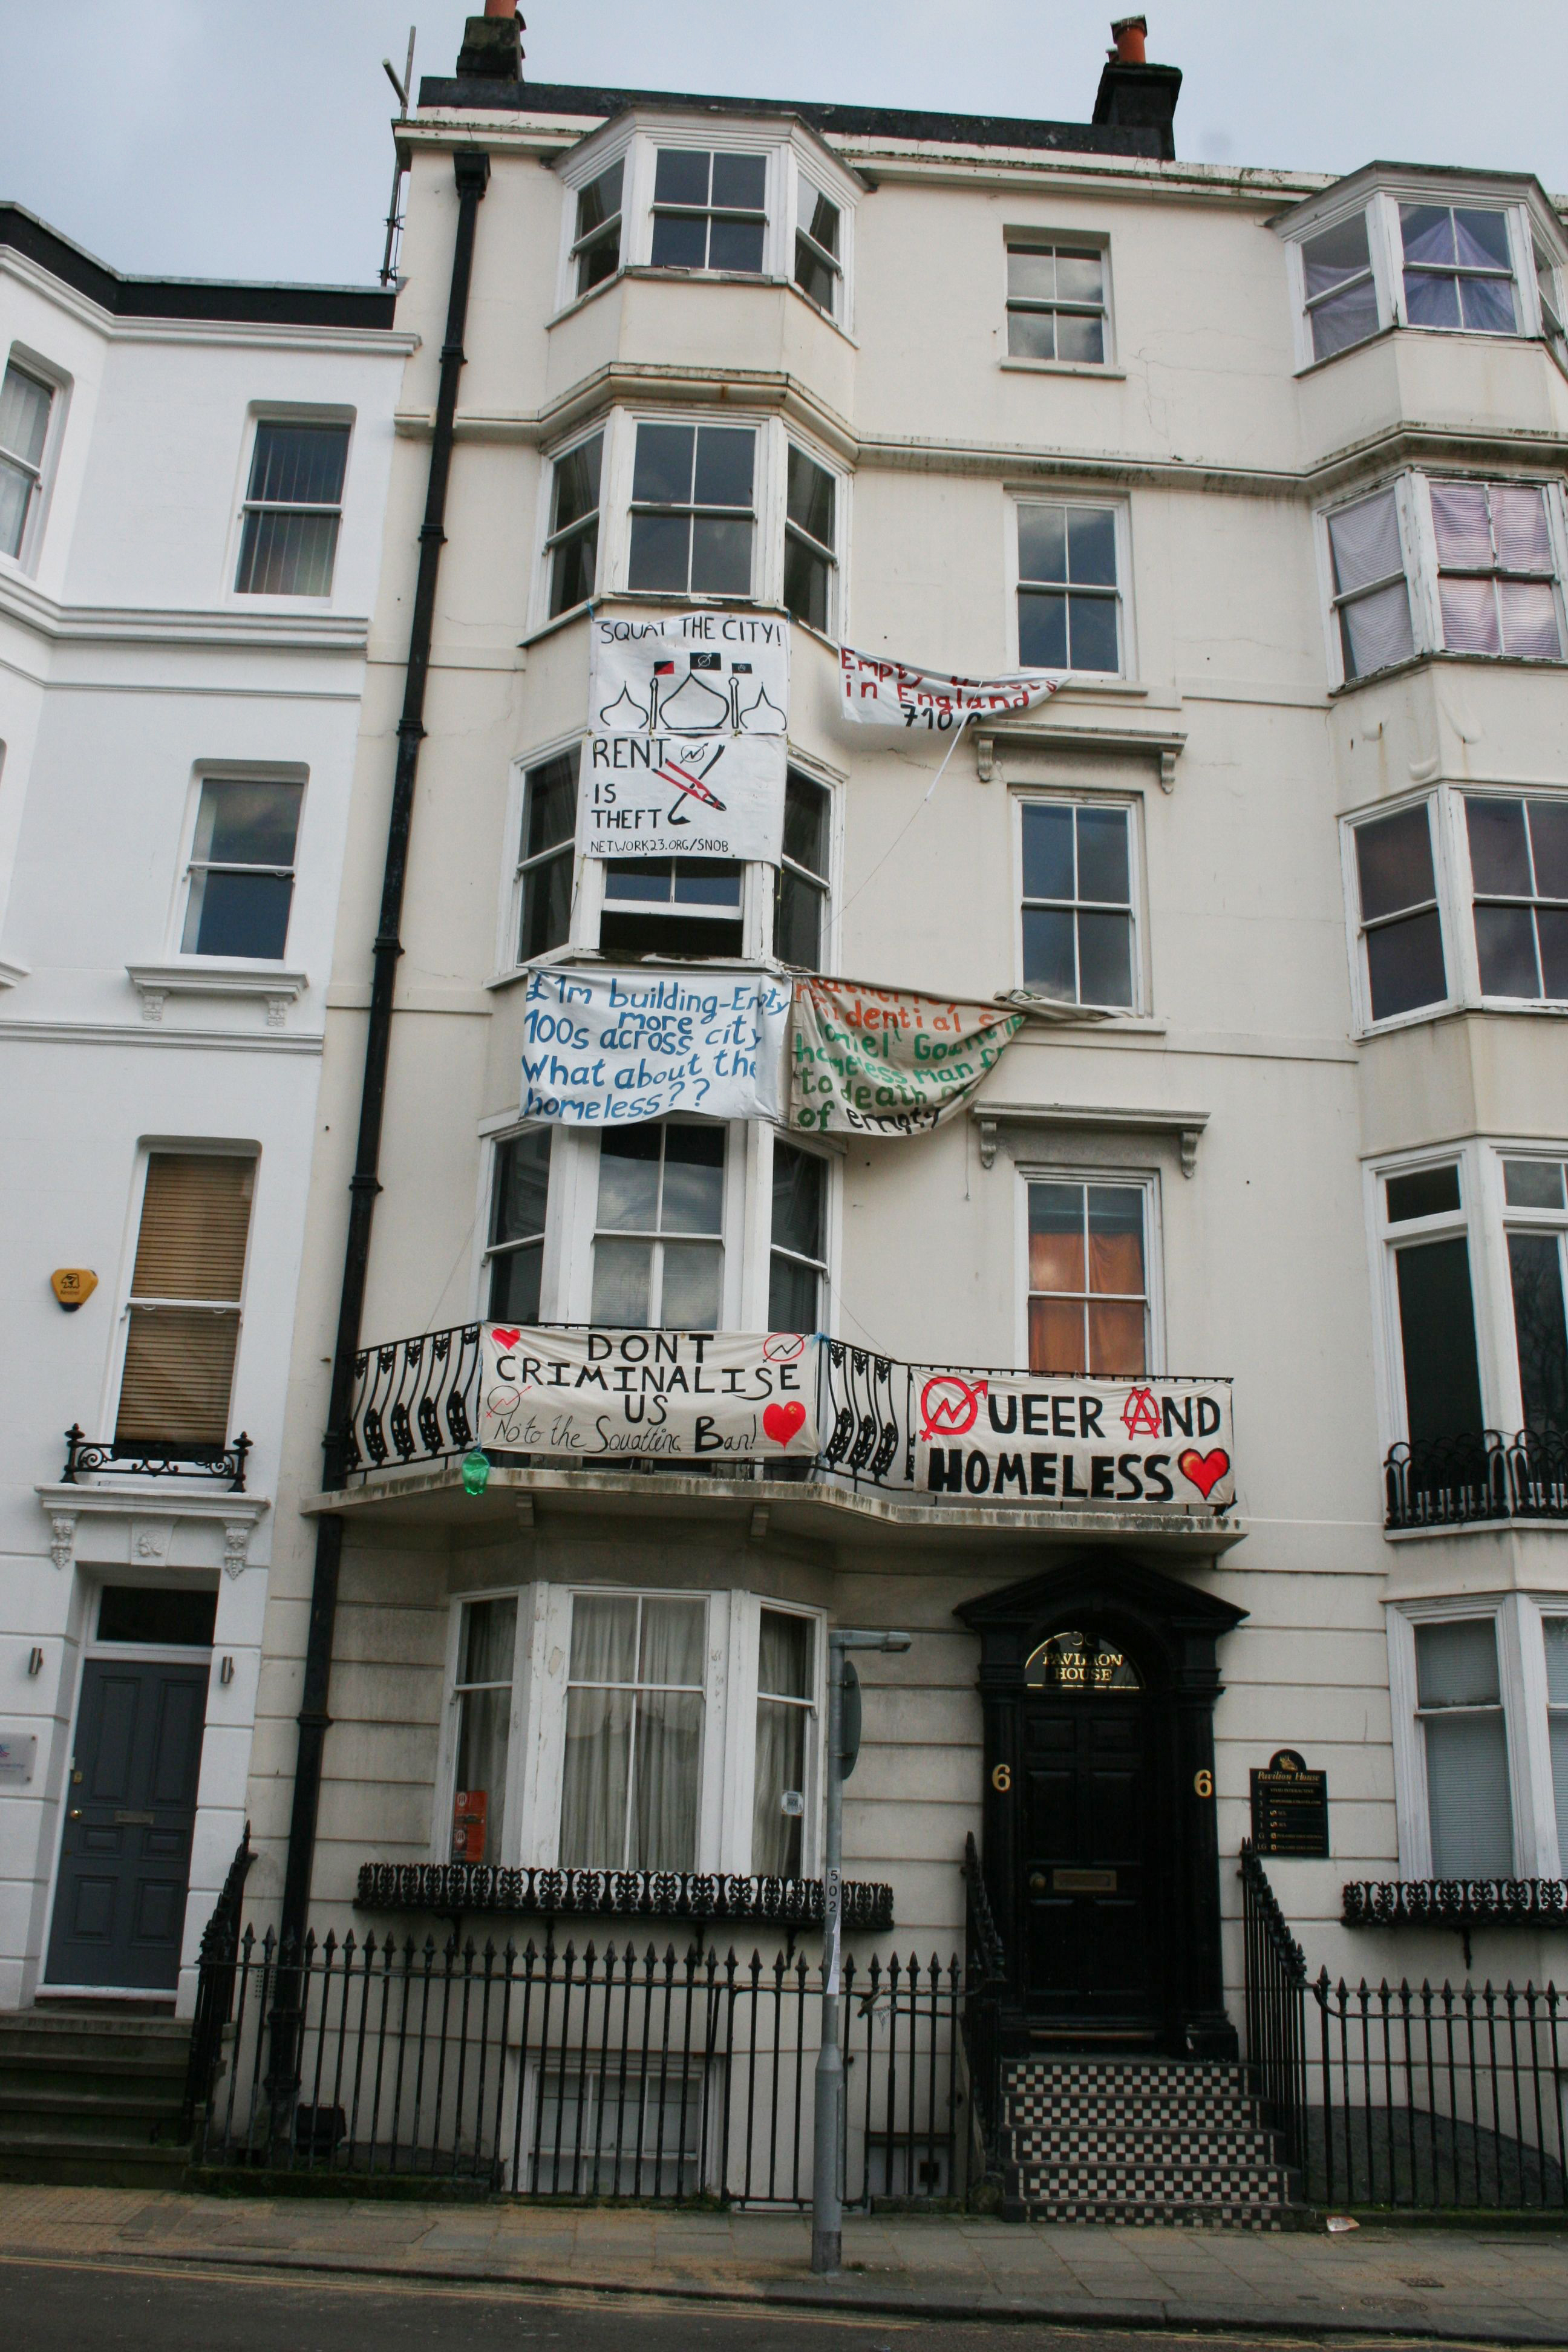 SQUAT THE CITY!
RENT
IS
THEFT
NETWORK23.ORG/SNOB
Empty
in England
710,0
£1m building-Empty
100s more
across city
What about the
homeless??
idential
Daniel
homeless man
to death
of empty
DONT
CRIMINALISE
US
No to the Squatting Ban!
QUEER AND
HOMELESS
PAVILION
HOUSE
6
6
Pavilion House
502